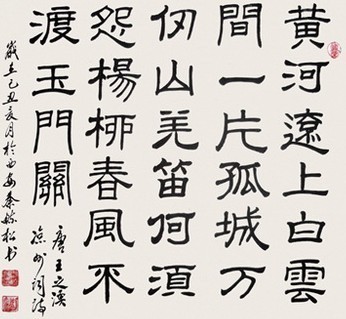 黄河遠上白雲
間一片孤城万
仞山羌笛何須
怨楊柳春風不
渡玉門關
唐王之渙
凉州詞詩
歲在己丑亥月於西安秦毓松书